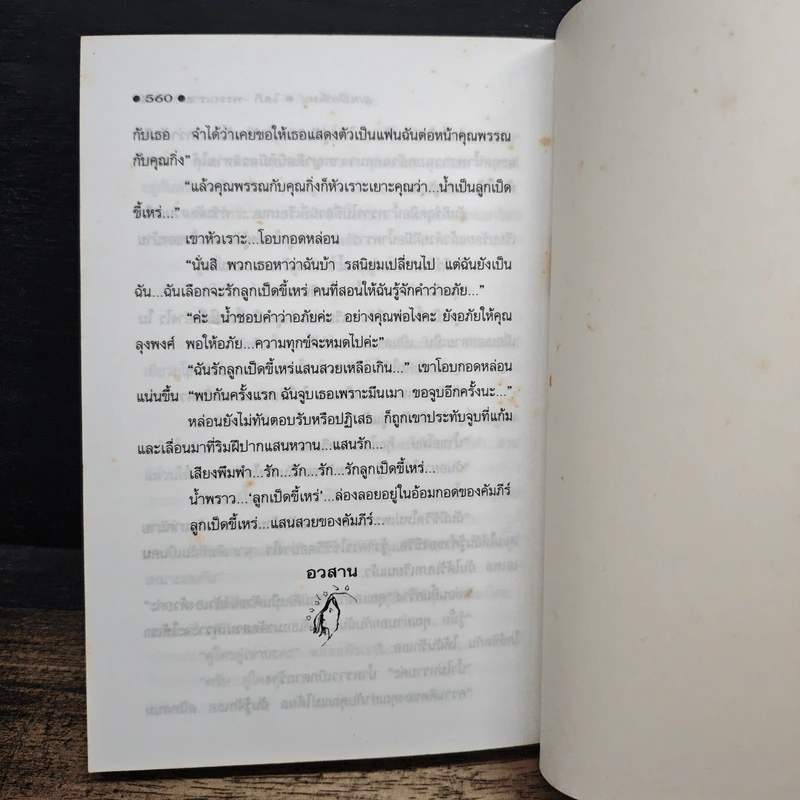 ● 560 ●
กับเธอ จำได้ว่าเคยขอให้เธอแสดงตัวเป็นแฟนฉันต่อหน้าคุณพรรณ
กับคุณกิ่ง”
“แล้วคุณพรรณกับคุณกิ่งก็หัวเราะเยาะคุณว่า...น้ำเป็นลูกเป็ด
ขี้เหร่...”
เขาหัวเราะ...โอบกอดหล่อน
“นั่นสิ พวกเธอหาว่าฉันบ้า รสนิยมเปลี่ยนไป แต่ฉันยังเป็น
ฉัน...ฉันเลือกจะรักลูกเป็ดขี้เหร่ คนที่สอนให้ฉันรู้จักคำว่าอภัย...”
“ค่ะ น้ำชอบคำว่าอภัยค่ะ อย่างคุณพ่อไงคะ ยังอภัยให้คุณ
ลุงพงศ์ พอให้อภัย...ความทุกข์จะหมดไปค่ะ”
“ฉันรักลูกเป็ดขี้เหร่แสนสวยเหลือเกิน...” เขาโอบกอดหล่อน
แน่นขึ้น “พบกันครั้งแรก ฉันจูบเธอเพราะมึนเมา ขอจูบอีกครั้งนะ...”
หล่อนยังไม่ทันตอบรับหรือปฏิเสธ ก็ถูกเขาประทับจูบที่แก้ม
และเลื่อนมาที่ริมฝีปากแสนหวาน...แสนรัก...
เสียงพึมพำ...รัก...รัก...รัก...รักลูกเป็ดขี้เหร่...
น้ำพราว...‘ลูกเป็ดขี้เหร่’...ล่องลอยอยู่ในอ้อมกอดของคัมภีร์
ลูกเป็ดขี้เหร่...แสนสวยของคัมภีร์...
อวสาน